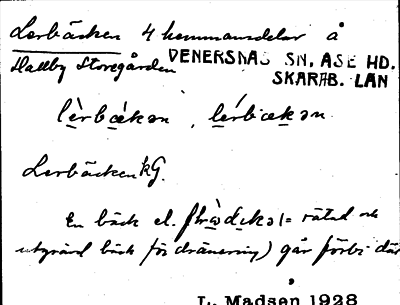 Lerbäcken 4 hemmansdelar å
Hallby Storegården VENERSNÄS SN. ÅSE HD.
SKARAB. LÄN
lèrbækən, lérbækən
Lerbäcken kG.
En bäck el. (= rätad och
utgrävd bäck för dränering) går förbi där
L. Madsen 1928